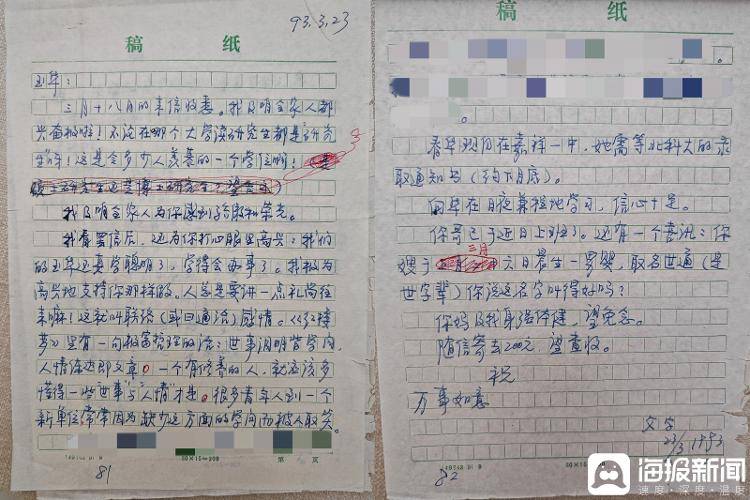 93.3.23
稿 纸
玉华：
三月十八月的来信收悉。我及咱全家人都
兴奋极啦！不论在哪个大学读研究生都是研究
生呀！这是令多少人羡慕的一个学位啊！
我及咱全家人为你感到骄傲和荣光。
我看罢信后，还为你打心眼里高兴：我们
的玉华还真学聪明了，学得会办事了。我极为
高兴地支持你那样做。人总是要讲一点礼尚往
来嘛！这就叫联络（或曰通洽）感情。《红楼
梦》里有一句极富哲理的话：世事洞明皆学问，
人情练达即文章。一个有修养的人，就应该多
懂得一些"世事"与"人情"才是。很多青年人到一个
新单位，常常因为缺少这方面的学问而被人取笑。
20×15=300
第 页
81
稿 纸
春华现仍在嘉祥一中，她需等北科大的录
取通知书（约下月底）。
向华在日夜兼程地学习，信心十足。
你哥已于近日上班了。还有一个喜讯：你
嫂于三月六日晨生一男婴，取名世通（是
世字辈）你说这名字叫得好吗？
你妈及我身强体健，望免念。
随信寄去200元，望查收。
祝
万事如意
父字
23/3 1993
82
海报新闻
速度·深度·温度